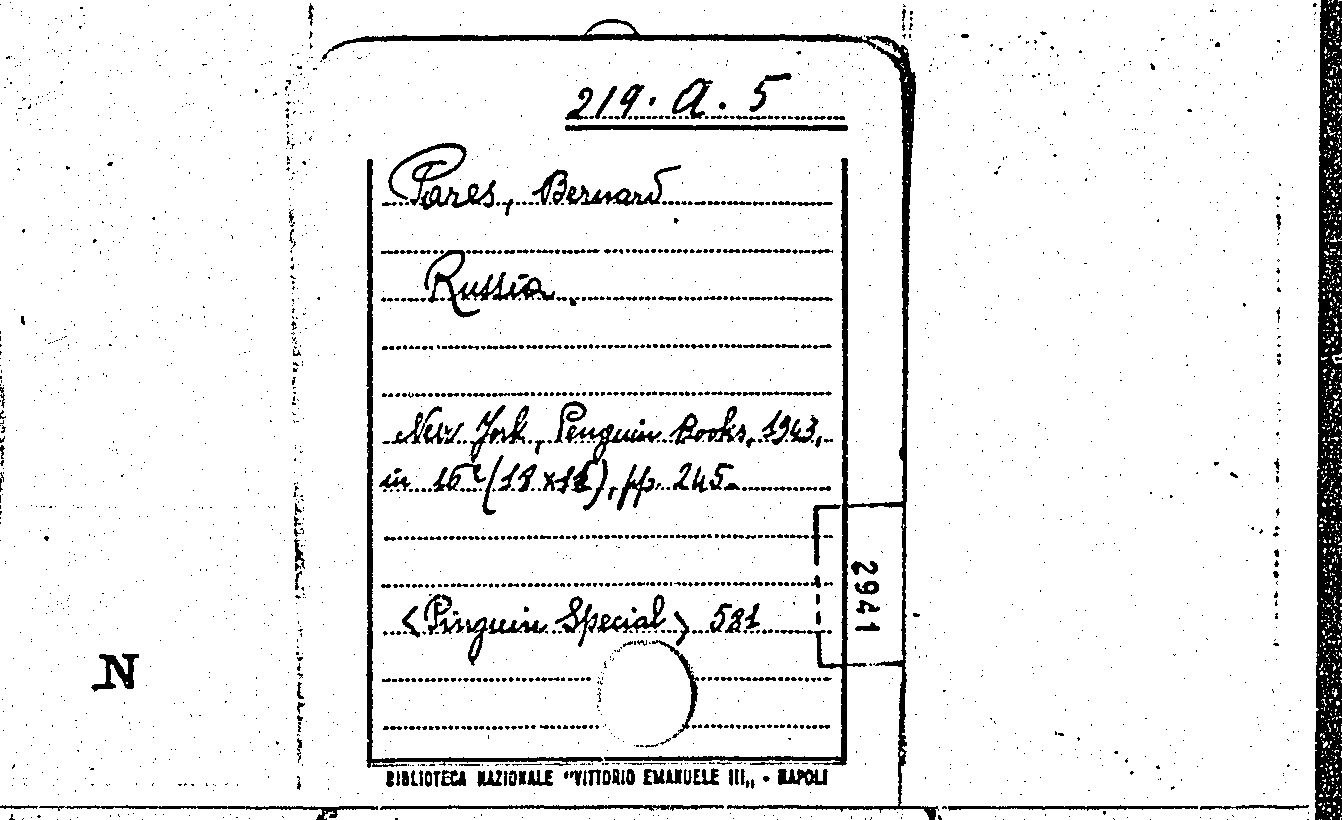 219. A. 5
Pares, Bernard
Russia.
New York, Penguin Books, 1943,
in 16° (18 x 11), pp. 245.
<Pinguin Special> 521
2941
N
BIBLIOTECA NAZIONALE "VITTORIO EMANUELE III„ - NAPOLI